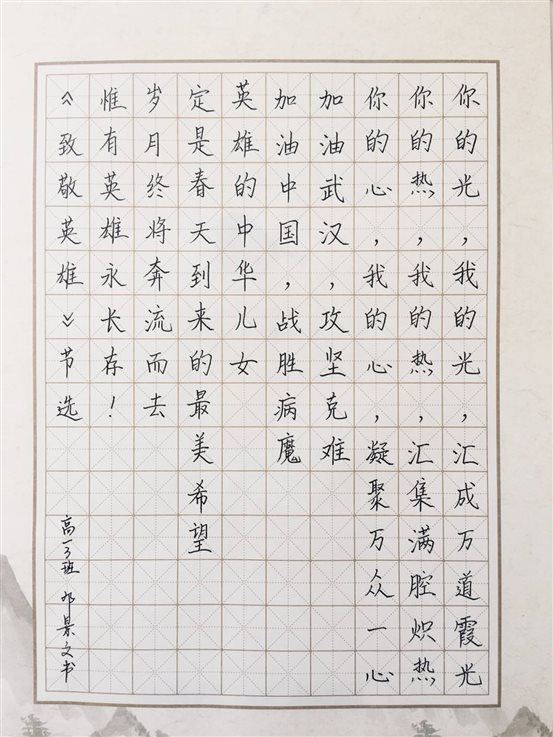 你的光,我的光,汇成万道霞光
你的热,我的热,汇集满腔炽热
你的心,我的心,凝聚万众一心
加油武汉,攻坚克难
加油中国,战胜病魔
英雄的中华儿女
定是春天到来的最美希望
岁月终将奔流而去
惟有英雄永长存!
《致敬英雄》节选
高一3班 景文书